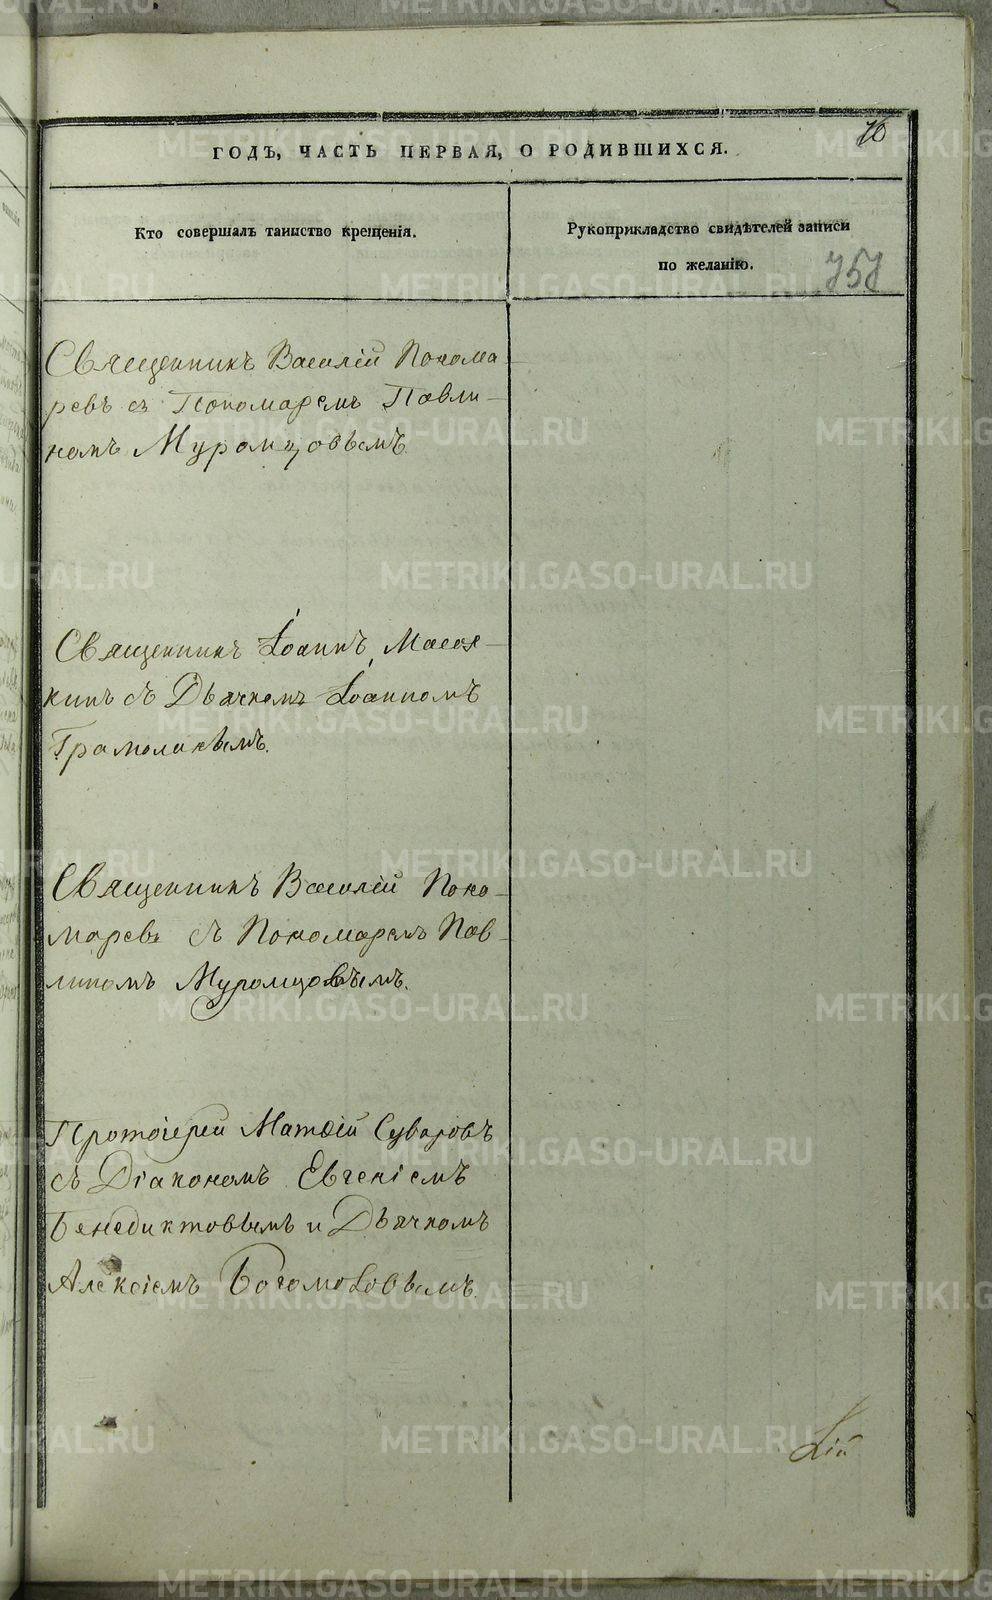 70
ГОДЪ, ЧАСТЬ ПЕРВАЯ, О РОДИВШИХСЯ.
Кто совершалъ таинство крещенія.
Рукоприкладство свидѣтелей записи
по желанію.
757
Священникъ Василій Понома
ревъ съ Пономаремъ Павли-
номъ Муромцовымъ
Священникъ Іоаннъ Масля-
кинъ съ Дьячкомъ Іоанномъ
Священникъ Василій Поно-
маревъ съ Пономаремъ Пав-
линомъ Муромцовымъ.
Протоіерей Матѳій Суворовъ
съ Діакономъ Евгеніемъ
Бенедиктовымъ и Дьячкомъ
Алексіемъ Богомоловымъ.
METRIKI.GASO-URAL.RU